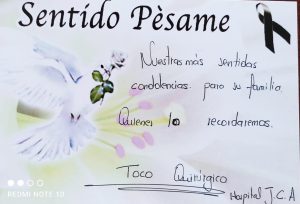 Sentido Pèsame
Nuestras más sentidas
condolencias para su familia.
Quienes lo recordaremos.
Toco Quirúrgico
Hospital J.C.A
REDMI NOTE 10